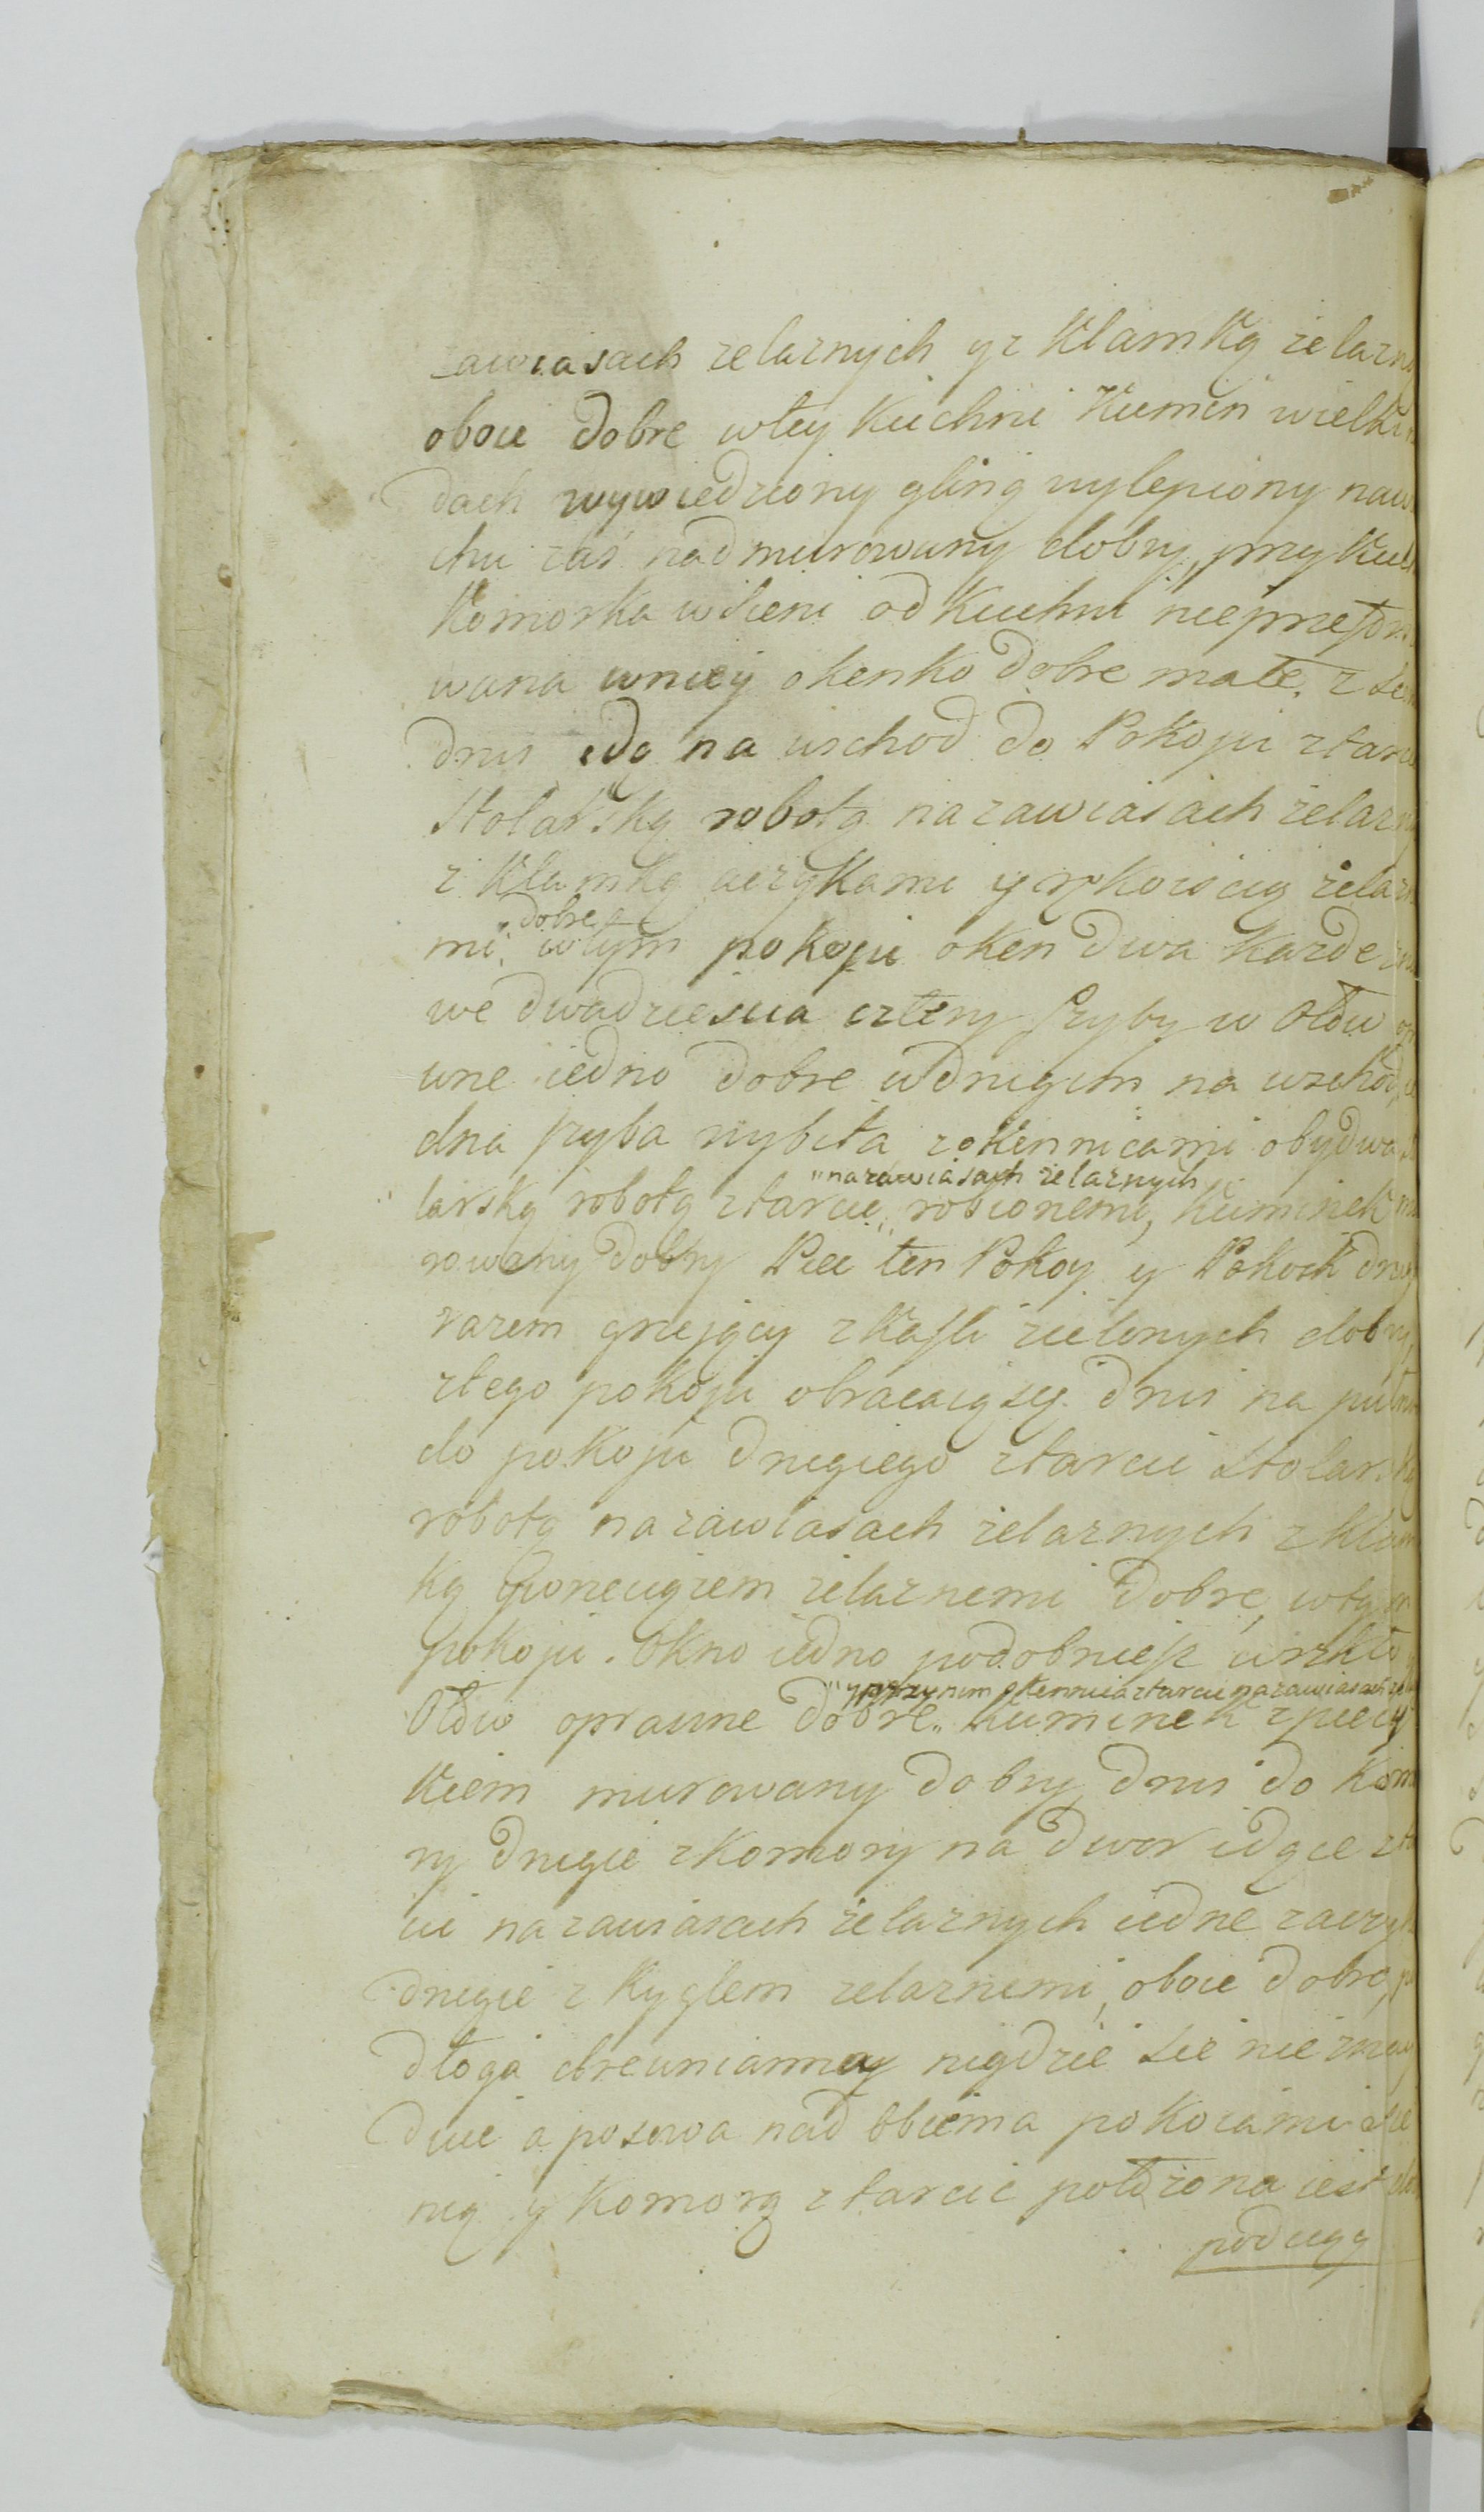 zawiasach zelaznych y z Klamką zelazn
oboie dobre wtey Kuchni Kumin wielki
dach wywiedziony gliną wylepiony naw
chu zaś nadmurowany dobry, przy Kuch
Komorka wsieni od Kuchni nieprzeforo
wana wniey okenko dobre małe, z sie
drzwi idą na wschod do Pokoju ztarcic
Stolarską robotą nazawiasach żelazny
z Klamką aczykami y rękoiścią żelazn
dobre
mi, wtym pokoju oken dwa każde
we dwadziescia cztery szyby w Ołow op
wne iedno dobre wdrugim na wschod,
dna szyba wybita zokiennicami obydwa
"nazawiasach żelaznych
larską robotą ztarcic" robionemi, Kuminek mu
rowany dobry Piec ten Pokoy y Pokoik drug
razem grzejący z Kafli zielonych dobry,
ztego pokoju obracaiąsię drzwi na puł
do pokoju drugiego ztarcic Stolarską
robotą nazawiasach żelaznych z klam
ką żelaznemi Dobre, wtym
pokoju Okno iedno podobnież wszkło
"yprzynim okennica ztarcic nazawiasach
Ołow oprawne dobre" Kuminek zpiecy
kiem murowany dobry drzwi do Komo
ry drugie zkomory na dwor idące zta
cic nazawiasach żelaznych iedne
drugie z Kyglem zelaznemi, oboie dobre, po
dłoga drewnianna nigdzie sie nie znay
duie a posowa nad obiema pokoiami sie
nią y Komorą ztarcic połozona iest
podcugą